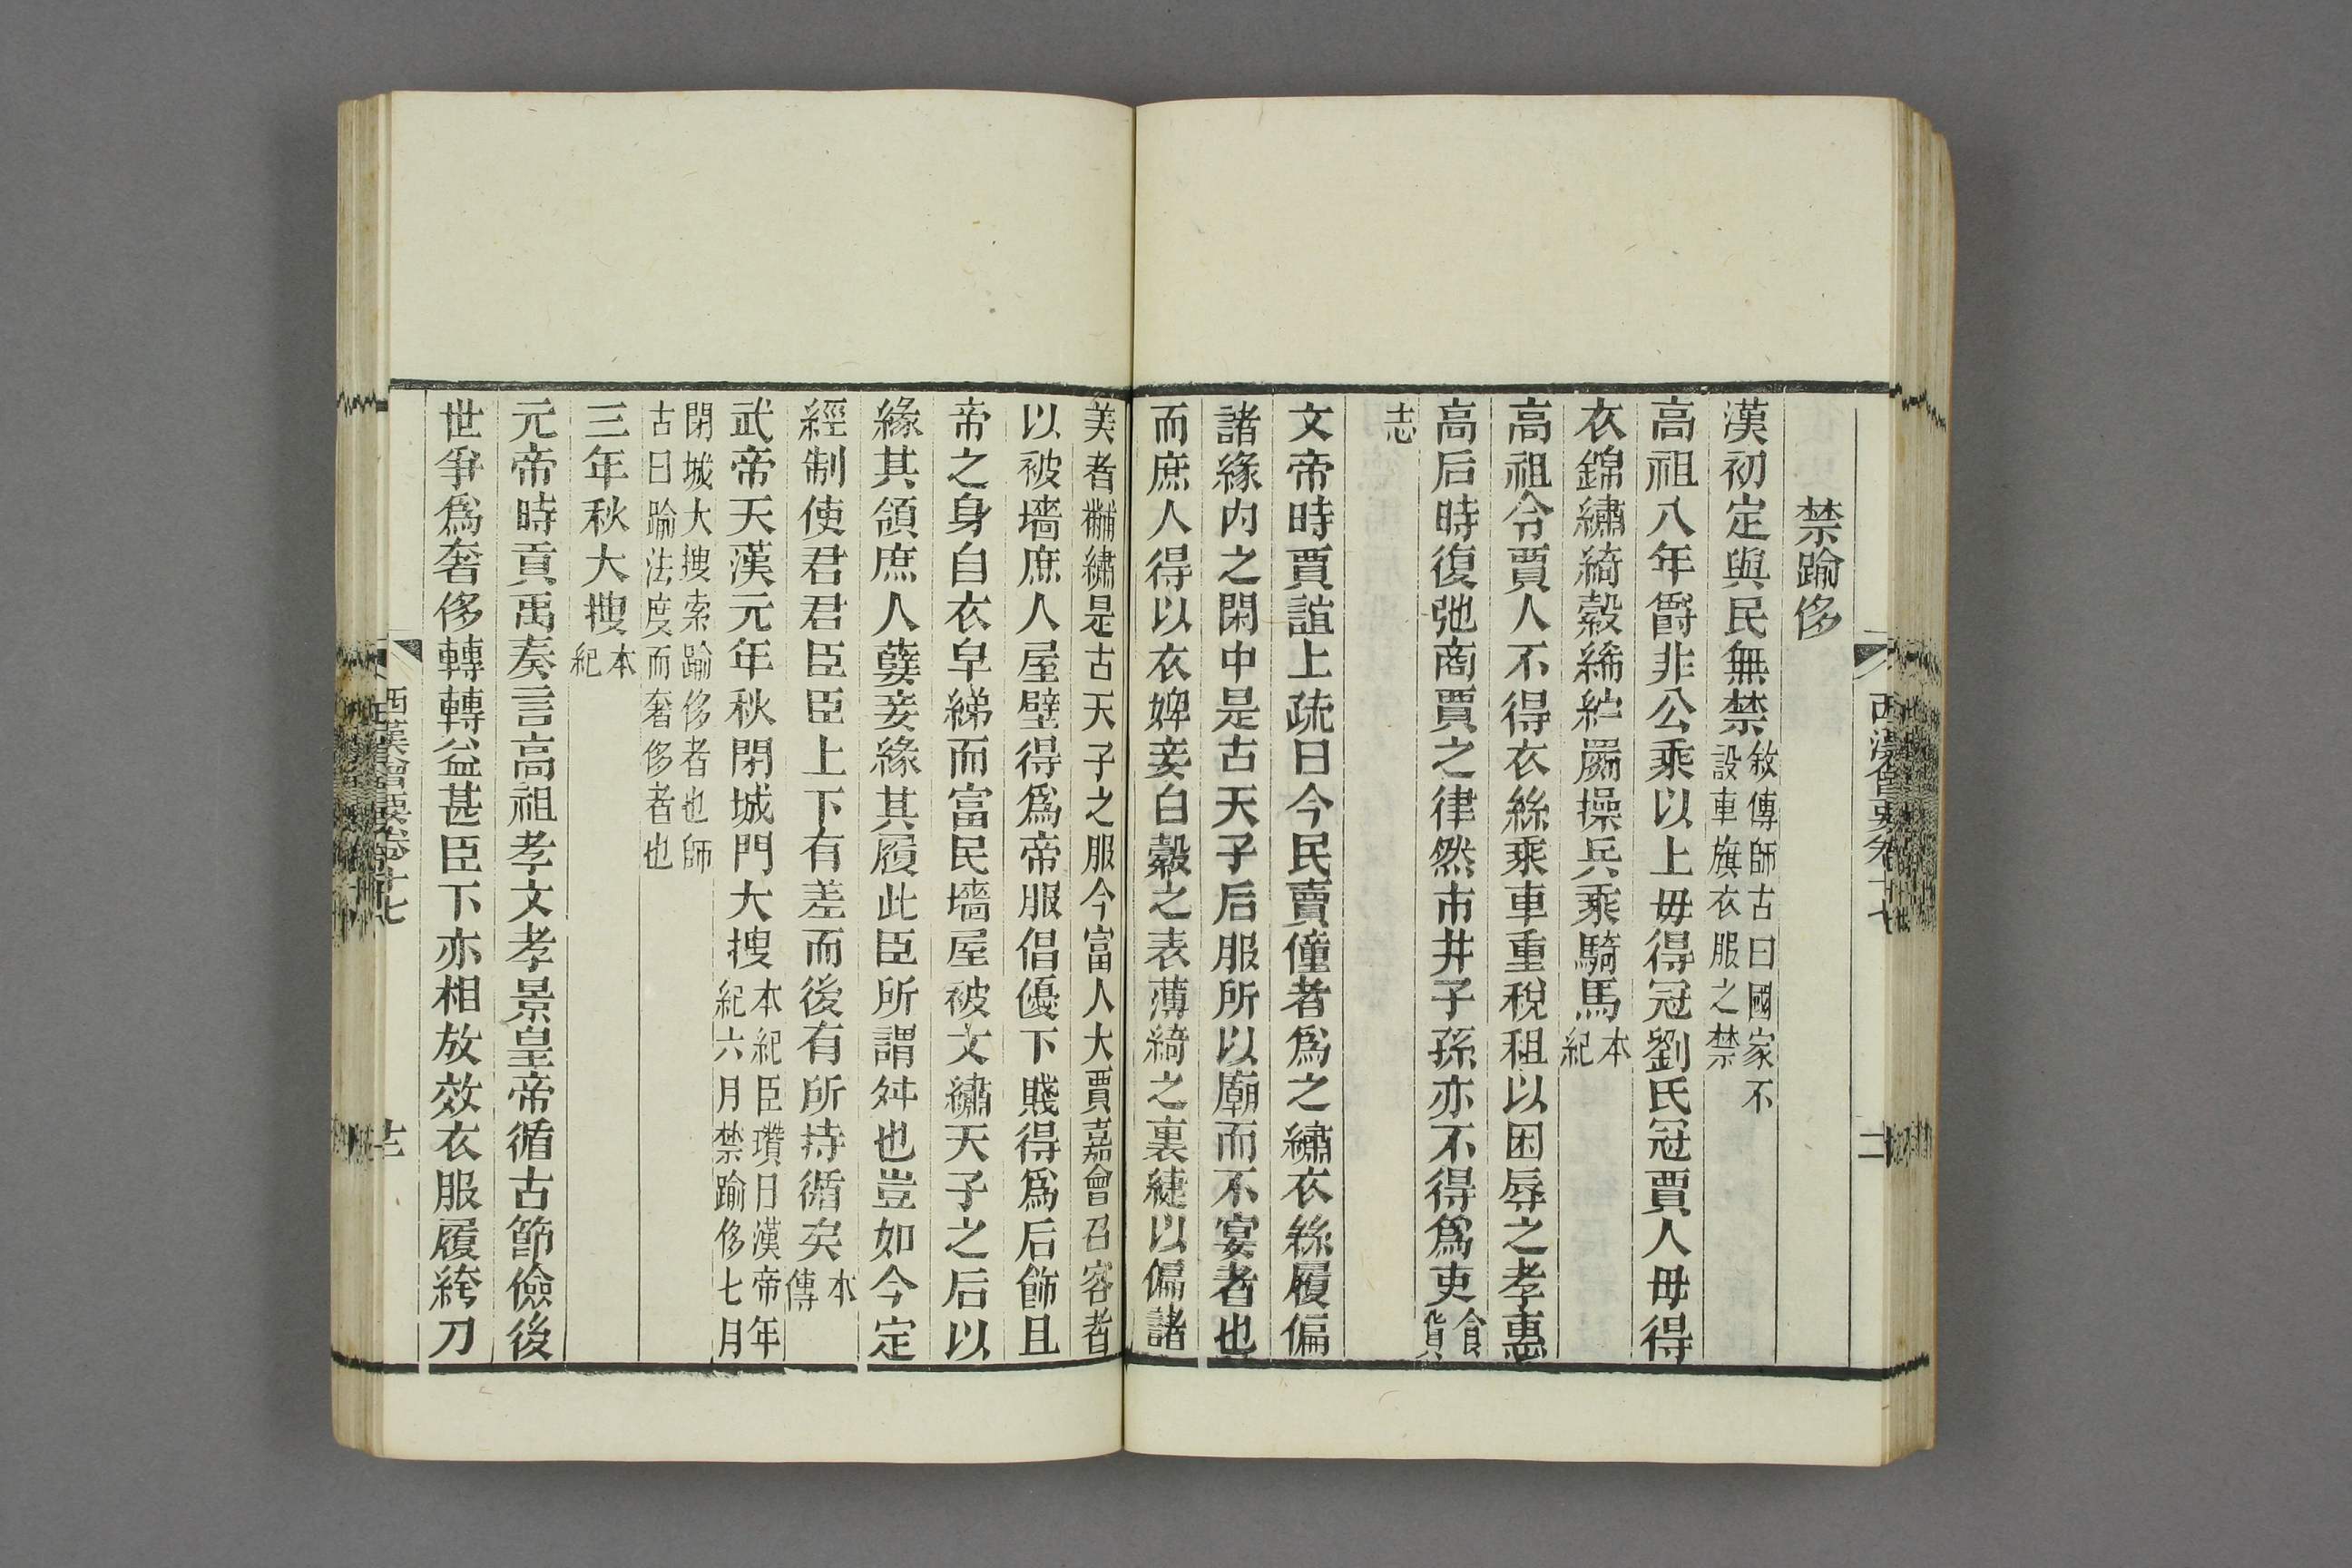 禁踰侈
漢初定與民無禁敘傳師古曰國家不設車旗衣服之禁
高祖八年爵非公乘以上毋得冠劉氏冠賈人毋得
衣錦繡綺縠絺紵罽操兵乘騎馬本紀
高祖令賈人不得衣絲乘車重稅租以困辱之孝惠
高后時復弛商賈之律然市井子孫亦不得爲吏食貨
志
文帝時賈誼上疏曰今民賣僮者爲之繡衣絲履偏
諸緣內之閑中是古天子后服所以廟而不宴者也
而庶人得以衣婢妾白縠之表薄綺之裏緁以偏諸
美者黼繡是古天子之服今富人大賈嘉會召客者
以被墻庶人屋壁得爲帝服倡優下賤得爲后飾且
帝之身自衣皁綈而富民墻屋被文繡天子之后以
緣其領庶人孽妾緣其履此臣所謂舛也豈如今定
經制使君君臣臣上下有差而後有所持循矣本傳
武帝天漢元年秋閉城門大搜本紀臣瓚曰漢帝年紀六月禁踰侈七月
閉城大搜索踰侈者也師古曰踰法度而奢侈者也
三年秋大搜本紀
元帝時貢禹奏言高祖孝文孝景皇帝循古節儉後
世爭爲奢侈轉轉益甚臣下亦相放效衣服履絝刀
西漢會要卷十七